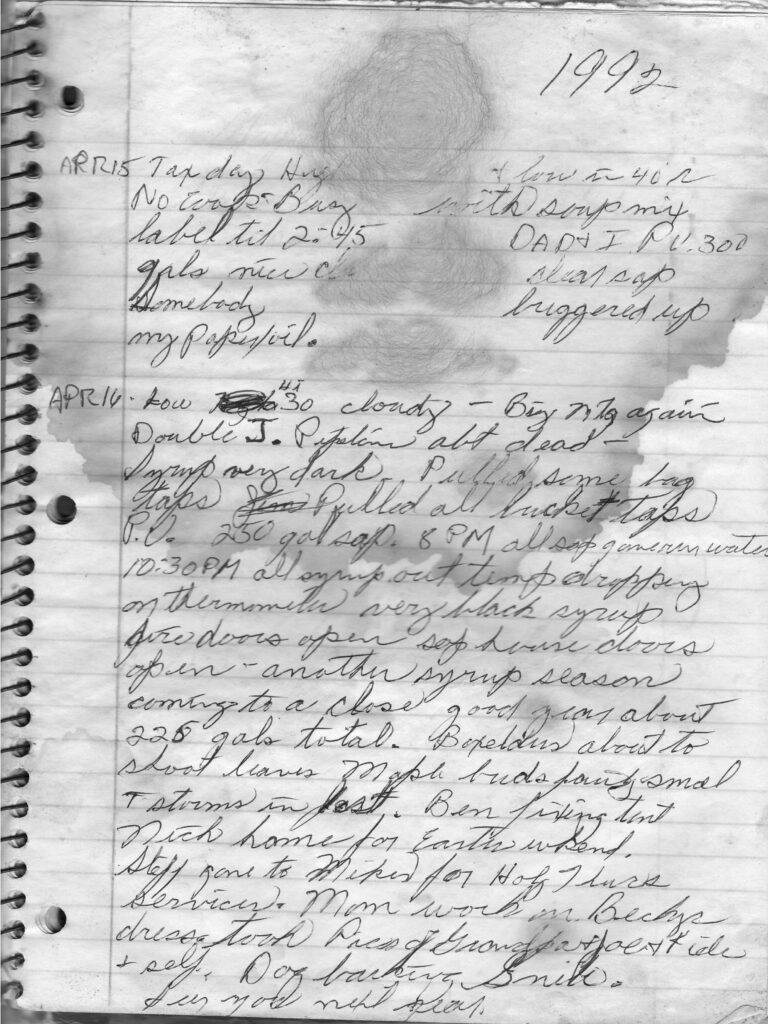 1992
APR 15 Tax day + low in 40's
No Busy with soap mix
label til 2:45 DAD & I P.U. 300
gals nice clear sap
Somebody buggered up
my Paper/oil.
APR 16. Low 30 cloudy - Busy again
Double J. Pipeline abt dead -
Syrup very dark. Pulled some bag
taps Pulled all bucket taps
P.U. 250 gal sap. 8 PM all sap gone run water
10:30 PM all syrup out temp dropping
on thermometer very black syrup
fire doors open sap house doors
open - another syrup season
coming to a close good year about
225 gals total. Boxelders about to
shoot leaves Maple buds small
+ storms in Ben fixing tent
Nick home for Easter wkend.
Steff gone to Mikes for Holy Thurs
services. Mom work on Beckys
dress. took Pics of Grandpa + Joe +
+ self. Dog barking Snik.
See you next year.